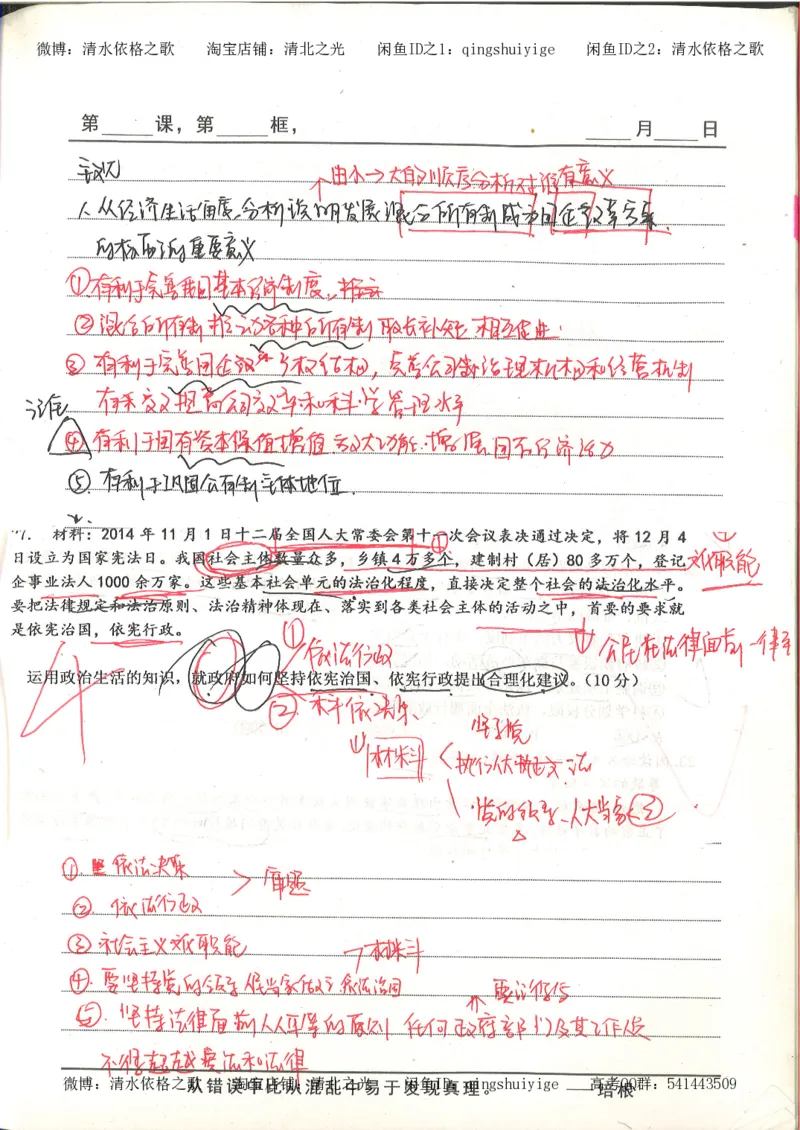 微博：清水依格之歌 淘宝店铺：清北之光 闲鱼ID之1：qingshuiyige 闲鱼ID之2：清水依格之歌
第 课，第 框， 月 日
由小→大的顺序分析对谁有意义
人从经济生活角度分析说明发展混合所有制成为国企改革方案
的标配的重要意义
①有利于完善我国基本经济制度，
②混合所有制推动各种所有制取长补短 相互促进
③有利于完善国企 股权结构，完善公司制治理机构和经营机制
提高公司效率和科学管理水平
④有利于国有资本保值增值 放大功能 增强国有经济活力
⑤有利于巩固公有制主体地位
材料：2014 年 11 月 1 日十二届全国人大常委会第十一次会议表决通过决定，将 12 月 4
日设立为国家宪法日。我国社会主体数量众多，乡镇 4 万多个，建制村（居）80 多万个，登记
企事业法人 1000 余万家。这些基本社会单元的法治化程度，直接决定整个社会的法治化水平。
要把法律规定和法治原则、法治精神体现在、落实到各类社会主体的活动之中，首要的要求就
是依宪治国，依宪行政。
① 依法行政
公民在法律面前一律平
运用政治生活的知识，就政府如何坚持依宪治国、依宪行政提出合理化建议。（10 分）
② 科 依 决策
材料
党的领导 人大当家 ③
① 依法决策
审题
② 依法行政
③ 社会主义 职能
材料
④ 要坚持党的领导 当家做主 依法治国
⑤ 坚持法律面前人人平等的原则 任何政府部门及其工作人员
不得超越宪法和法律
微博：清水依格之歌 淘宝店铺：清北之光 闲鱼ID之1：qingshuiyige 高考QQ群：541443509
从错误中比从混乱中易于发现真理。 ——培根